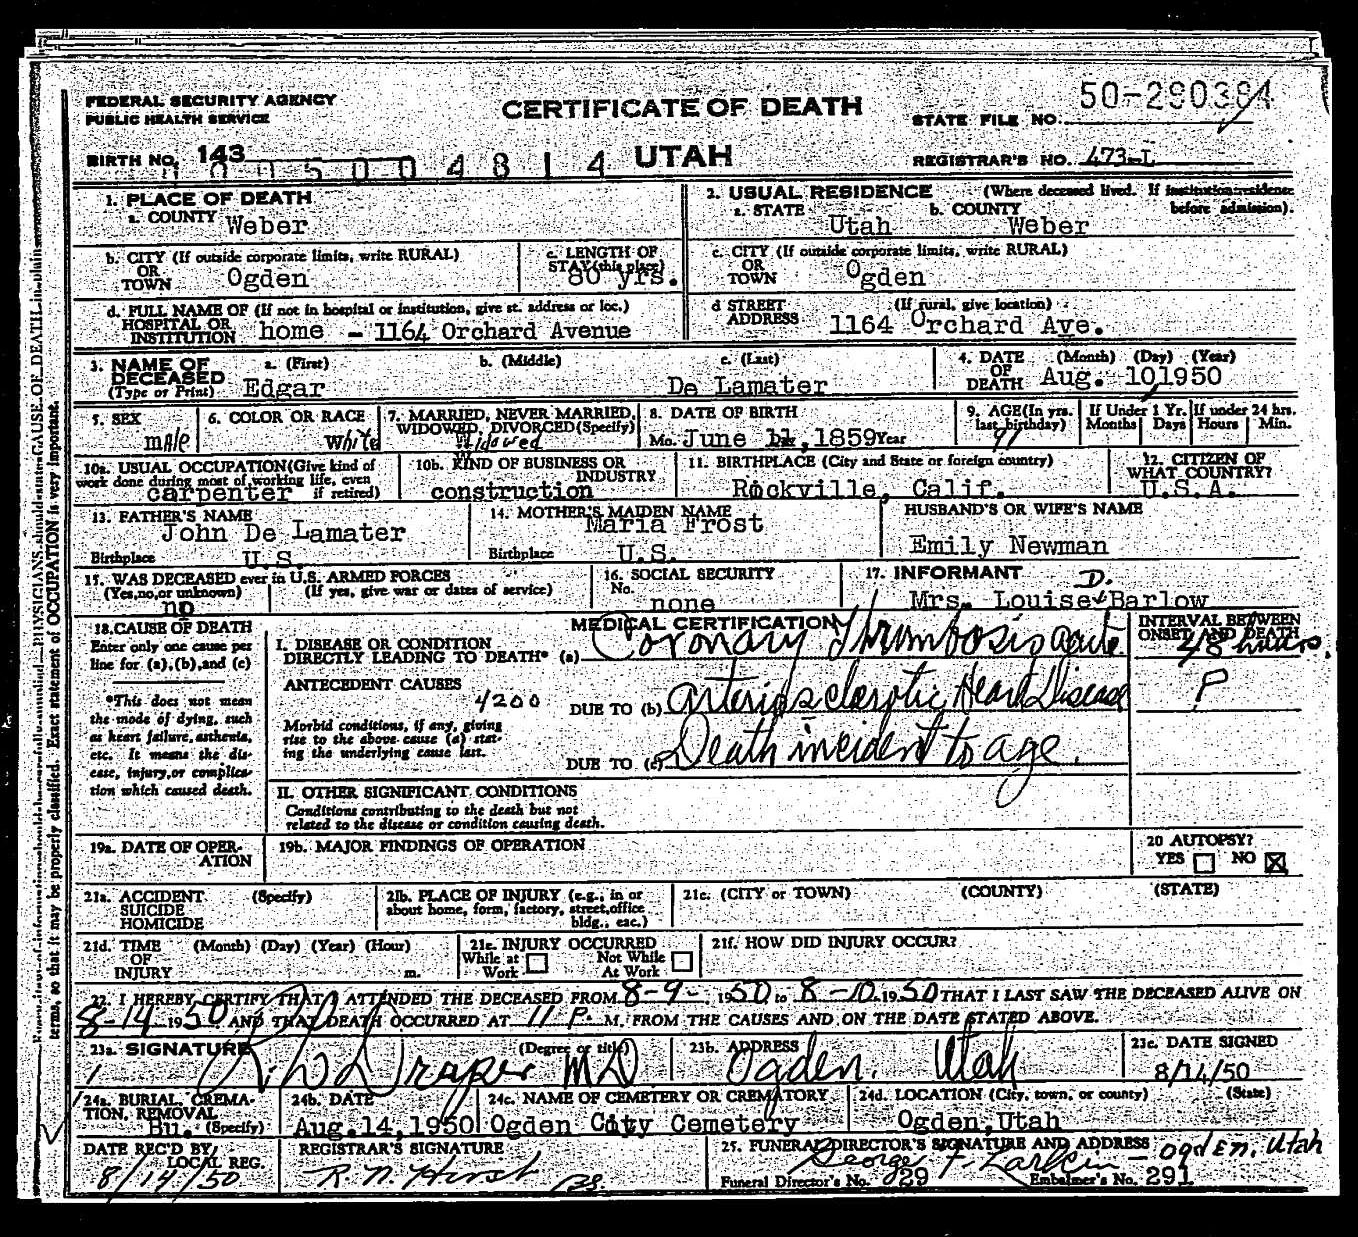 FEDERAL SECURITY AGENCY
PUBLIC HEALTH SERVICE
CERTIFICATE OF DEATH
50-280384
STATE FILE NO.
BIRTH NO. 143
4 8 1 4
UTAH
REGISTRAR'S NO. 473-L
1. PLACE OF DEATH
a. COUNTY Weber
2. USUAL RESIDENCE (Where deceased lived. If institution: residence before admission).
a. STATE Utah b. COUNTY Weber
b. CITY (If outside corporate limits, write RURAL)
OR
TOWN Ogden
c. LENGTH OF
STAY (this place)
80 yrs.
c. CITY (If outside corporate limits, write RURAL)
OR
TOWN Ogden
d. FULL NAME OF (If not in hospital or institution, give st. address or loc.)
HOSPITAL OR
INSTITUTION home - 1164 Orchard Avenue
d STREET (If rural, give location)
ADDRESS 1164 Orchard Ave.
3. NAME OF
DECEASED
(Type or Print)
a. (First) b. (Middle) c. (Last)
Edgar De Lamater
4. DATE (Month) (Day) (Year)
OF
DEATH Aug. 10, 1950
5. SEX
male
6. COLOR OR RACE
White
7. MARRIED, NEVER MARRIED,
WIDOWED, DIVORCED (Specify)
Widowed
8. DATE OF BIRTH
Mo. June Day 11, 1859 Year
9. AGE (In yrs.
last birthday)
91
If Under 1 Yr.
Months Days
If under 24 hrs.
Hours Min.
10a. USUAL OCCUPATION (Give kind of
work done during most of working life, even
if retired)
carpenter
10b. KIND OF BUSINESS OR
INDUSTRY
construction
11. BIRTHPLACE (City and State or foreign country)
Rockville, Calif.
12. CITIZEN OF
WHAT COUNTRY?
U.S.A.
13. FATHER'S NAME
John De Lamater
Birthplace U.S.
14. MOTHER'S MAIDEN NAME
Maria Frost
Birthplace U.S.
HUSBAND'S OR WIFE'S NAME
Emily Newman
15. WAS DECEASED ever in U.S. ARMED FORCES
(Yes,no,or unknown) (If yes, give war or dates of service)
no
16. SOCIAL SECURITY
No.
none
17. INFORMANT
Mrs. Louise D. Barlow
18. CAUSE OF DEATH
Enter only one cause per
line for (a),(b),and (c)
*This does not mean
the mode of dying, such
as heart failure, asthenia,
etc. It means the dis-
ease, injury,or complica-
tion which caused death.
MEDICAL CERTIFICATION
I. DISEASE OR CONDITION
DIRECTLY LEADING TO DEATH* (a) Coronary Thrombosis acute
ANTECEDENT CAUSES
4200
Morbid conditions, if any, giving
rise to the above cause (a) stat-
ing the underlying cause last.
DUE TO (b) Arteriosclerotic Heart Disease
DUE TO (c) Death incident to age.
INTERVAL BETWEEN
ONSET AND DEATH
48 hours.
?
II. OTHER SIGNIFICANT CONDITIONS
Conditions contributing to the death but not
related to the disease or condition causing death.
19a. DATE OF OPER-
ATION
19b. MAJOR FINDINGS OF OPERATION
20 AUTOPSY?
YES NO X
21a. ACCIDENT (Specify)
SUICIDE
HOMICIDE
21b. PLACE OF INJURY (e.g., in or
about home, form, factory, street,office
bldg., etc.)
21c. (CITY or TOWN) (COUNTY) (STATE)
21d. TIME (Month) (Day) (Year) (Hour)
OF
INJURY m.
21e. INJURY OCCURRED
While at Work
Not While At Work
21f. HOW DID INJURY OCCUR?
22. I HEREBY CERTIFY THAT I ATTENDED THE DECEASED FROM 8-9- 1950 to 8-10 1950 THAT I LAST SAW THE DECEASED ALIVE ON
8-14 1950 AND THAT DEATH OCCURRED AT 11 P. M. FROM THE CAUSES AND ON THE DATE STATED ABOVE.
23a. SIGNATURE (Degree or title)
Draper MD
23b. ADDRESS
Ogden. Utah
23c. DATE SIGNED
8/14/50
24a. BURIAL, CREMA-
TION, REMOVAL
Bu. (Specify)
24b. DATE
Aug.14,1950
24c. NAME OF CEMETERY OR CREMATORY
Ogden City Cemetery
24d. LOCATION (City, town, or county) (State)
Ogden,Utah
DATE REC'D BY
LOCAL REG.
8/14/50
REGISTRAR'S SIGNATURE
25. FUNERAL DIRECTOR'S SIGNATURE AND ADDRESS
George F. Larkin - Ogden, Utah
Funeral Director's No. 29 Embalmer's No. 291
PHYSICIANS should state CAUSE OF DEATH in plain
terms, so that it may be properly classified. Exact statement of OCCUPATION is very important.